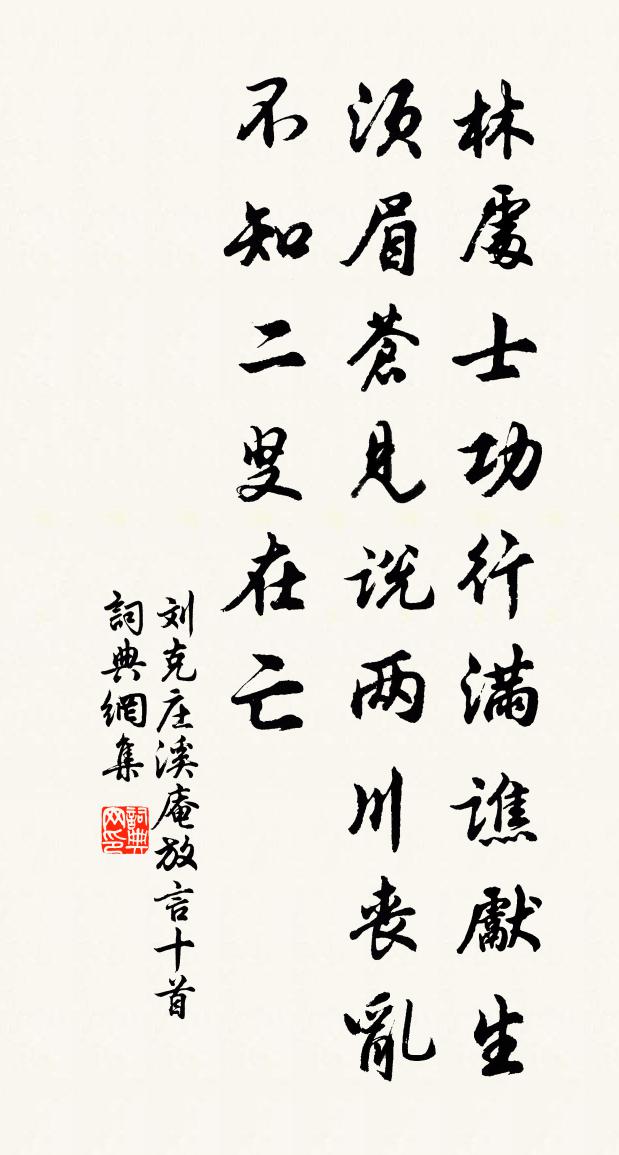 林處士功行滿譙獻生
須眉蒼見説两川喪亂
不知二叟在亡
刘克庄溪庵放言十首
詞典網集
詞典网印